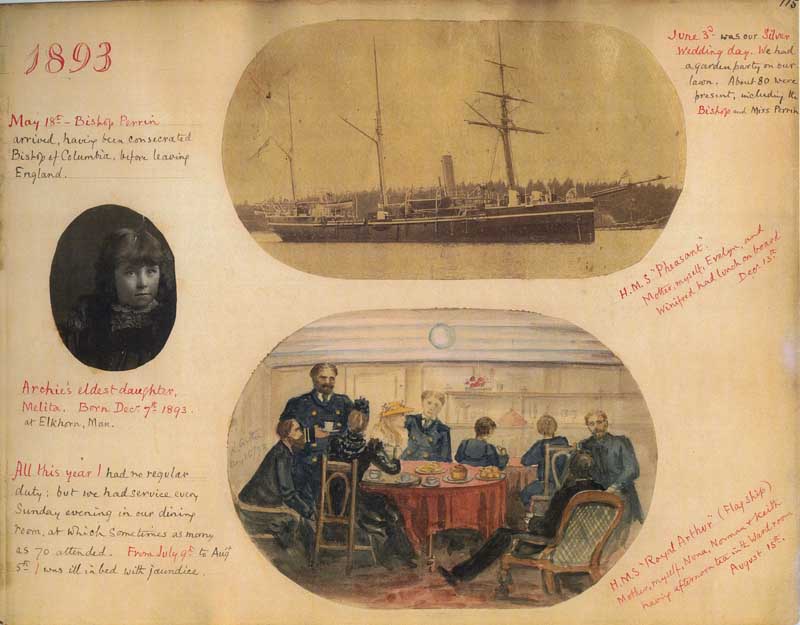 115
1893
May 18th - Bishop Perrin
arrived, having been consecrated
Bishop of Columbia, before leaving
England.
June 3d was our Silver
Wedding day. We had
a garden party on our
lawn. About 80 were
present, including the
Bishop and Miss Perrin
H.M.S. "Pheasant".
Mother, myself, Evelyn, and
Winifred had lunch on board
Decr 13th
Archie's eldest daughter,
Melita. Born Decr 7th 1893.
at Elkhorn, Man.
All this year I had no regular
duty: but we had service every
Sunday evening in our dining
room, at which sometimes as many
as 70 attended. From July 9th to Augt
5th I was ill in bed with jaundice.
H.M.S. "Royal Arthur" (Flagship)
Mother, myself, Nona, Norman & Keith
having afternoon tea in the Wardroom
August 15th.